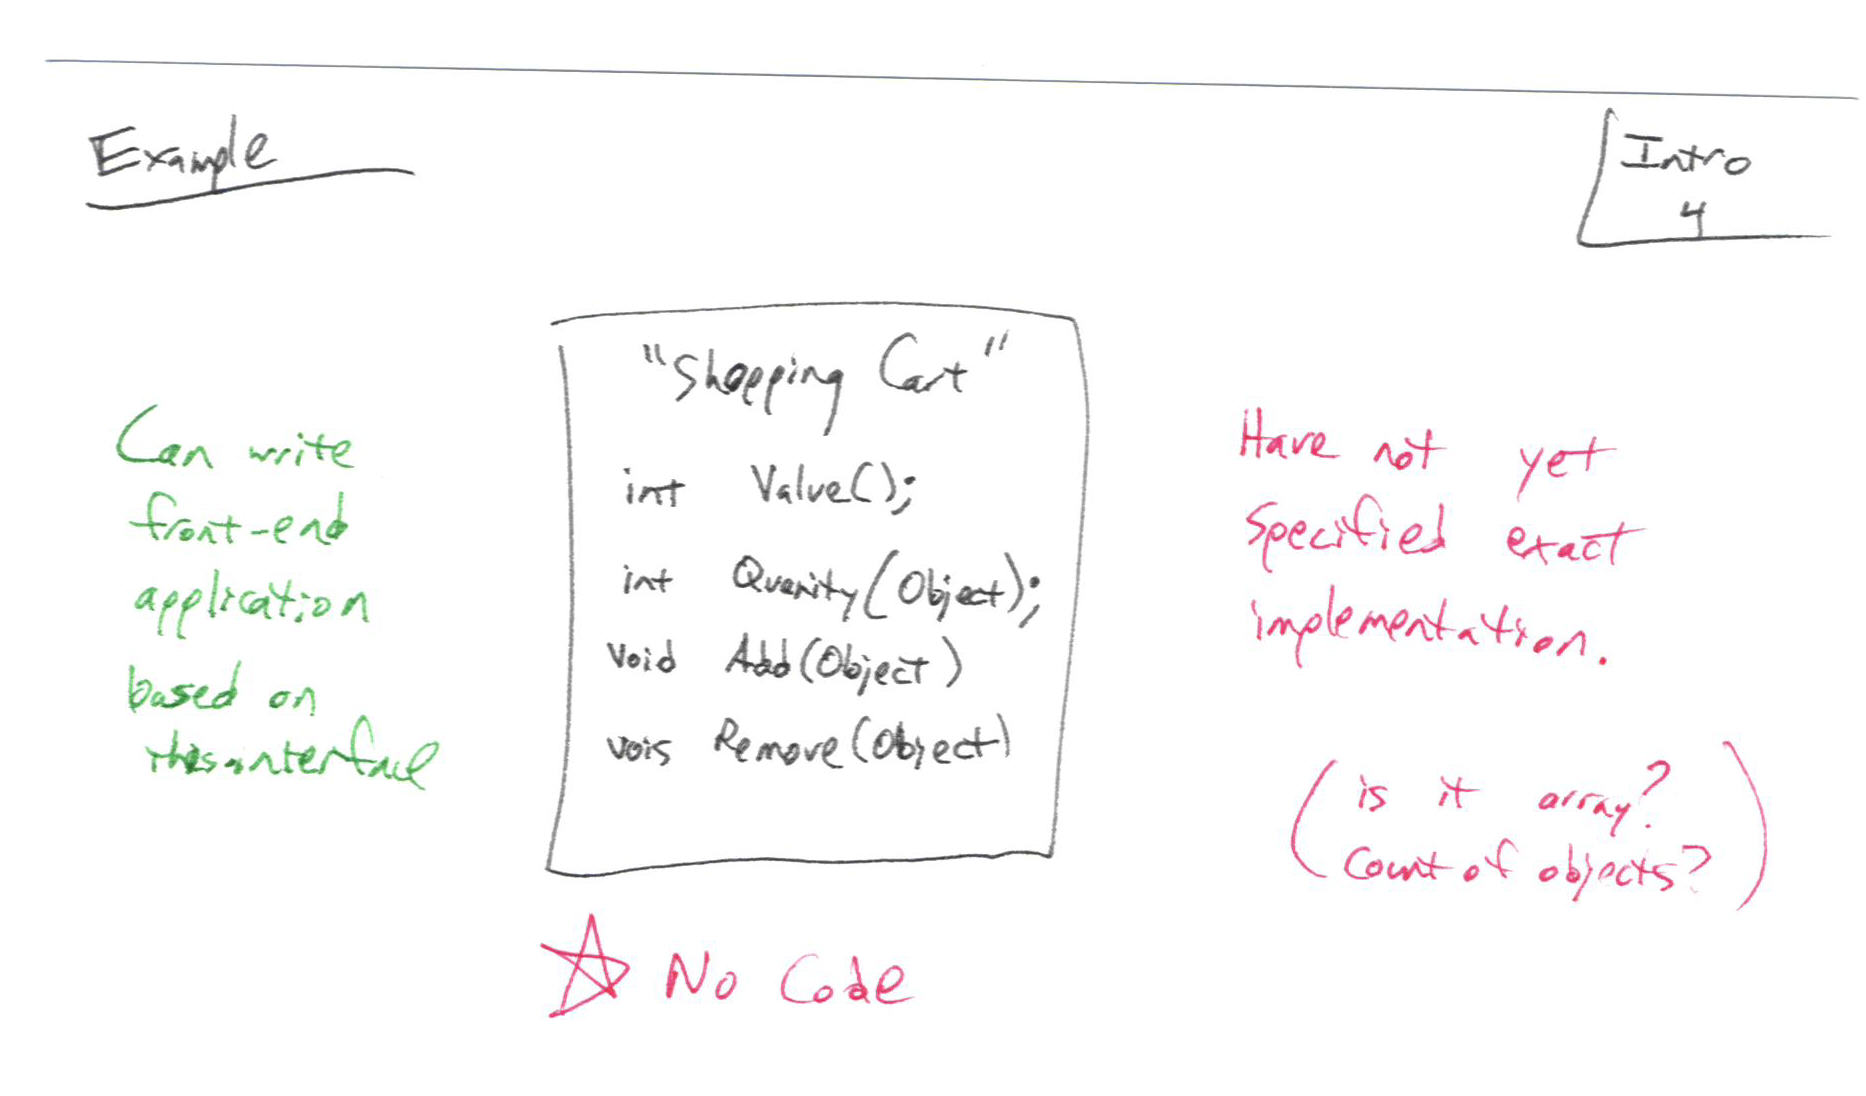 Example
Intro
4
Can write
front-end
application
based on
this interface
"Shopping Cart"
int Value();
int Quanity(Object);
void Add(Object)
vois Remove(Object)
Have not yet
specified exact
implementation.
(is it array?
count of objects?)
☆ No Code